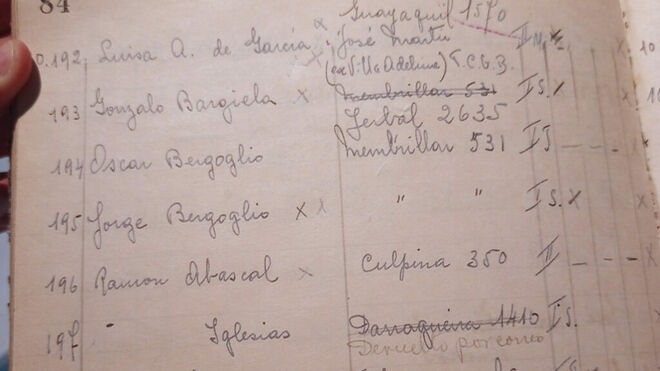 84
Guayaquil 1570
0.192 Luisa A. de García x José Martí II M. x
(ex V. U. Adelina) T.C.G.B.
193 Gonzalo Bargiela x Membrillar 531 I S. x
Yerbal 2635
194 Oscar Bergoglio Membrillar 531 I J - - - x
195 Jorge Bergoglio x x " " I S. x x
196 Ramon Abascal x Culpina 350 II - - - x
197 " Iglesias Darragueira 1410 I S.
Devuelto por correo